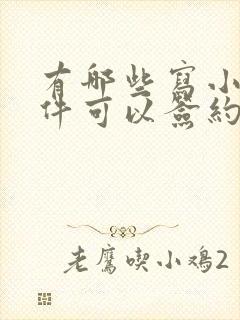 有哪些寫小
件可以簽約
老鷹喫小鸡2